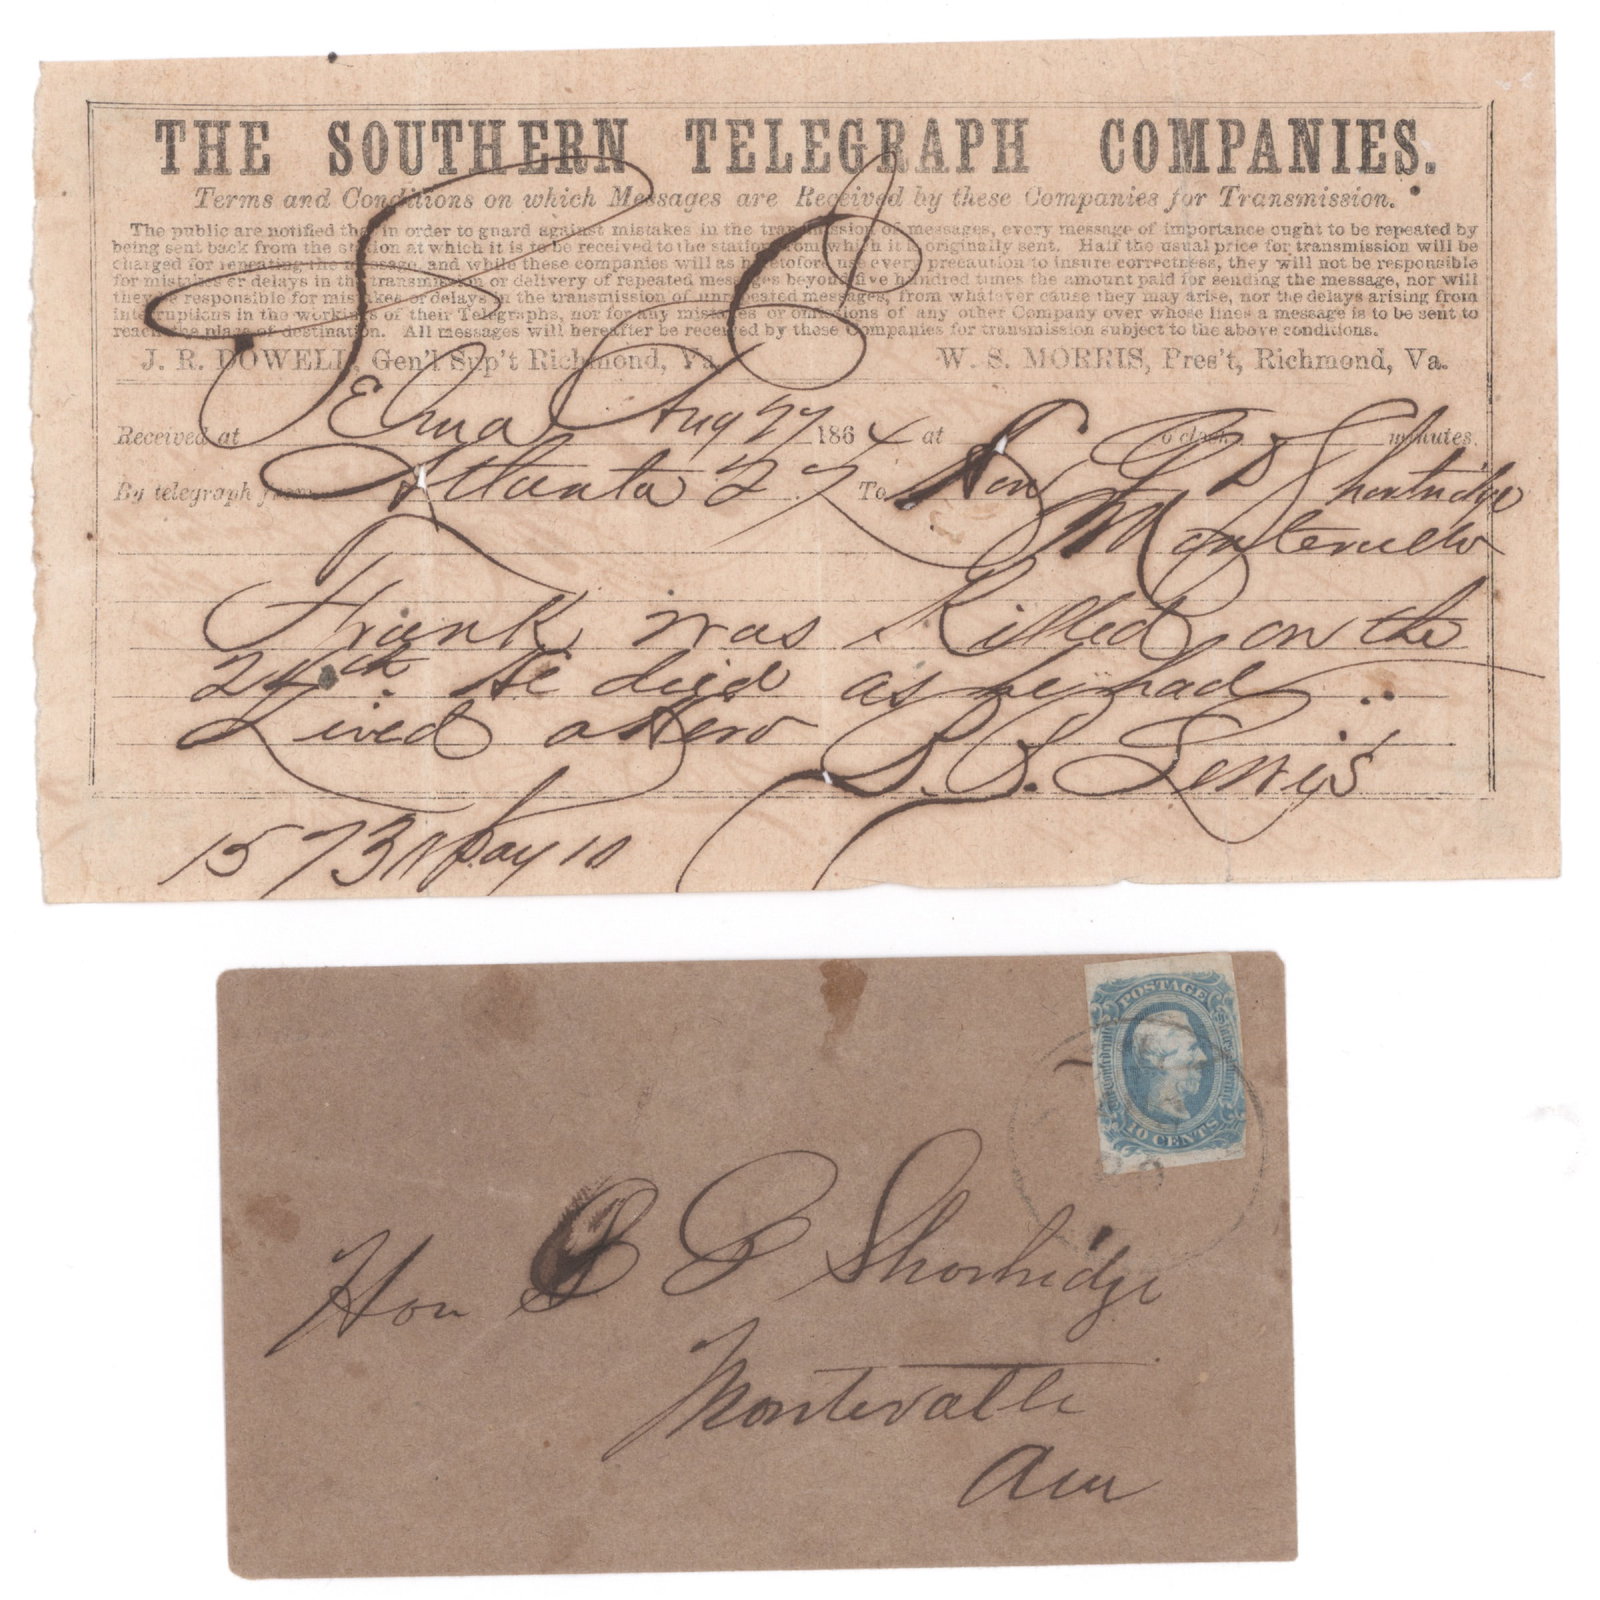 THE SOUTHERN TELEGRAPH COMPANIES.
Terms and Conditions on which Messages are Received by these Companies for Transmission.
The public are notified that in order to guard against mistakes in the transmission of messages, every message of importance ought to be repeated by
being sent back from the station at which it is to be received to the station from which it is originally sent. Half the usual price for transmission will be
charged for repeating the message, and while these companies will as heretofore use every precaution to insure correctness, they will not be responsible
for mistakes or delays in the transmission or delivery of repeated messages beyond five hundred times the amount paid for sending the message, nor will
they be responsible for mistakes or delays in the transmission of unrepeated messages, from whatever cause they may arise, nor the delays arising from
interruptions in the workings of their Telegraphs, nor for any mistakes or omissions of any other Company over whose lines a message is to be sent to
reach the place of destination. All messages will hereafter be received by these Companies for transmission subject to the above conditions.
J. R. DOWELL, Gen'l Sup't Richmond, Va. W. S. MORRIS, Pres't, Richmond, Va.
Received at Selma Aug 27 1864 at o'clock minutes.
By telegraph from Atlanta 27 To Hon Shortridge
Frank was Killed on the
24th. He died as he had
Lived a Hero
15 73 pay 10
POSTAGE
The Confederate States of America
10 CENTS
Hon Shortridge
Montevallo
Ala